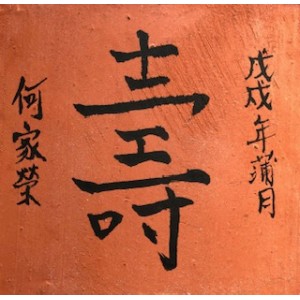 戊戌年蒲月
壽
何家榮